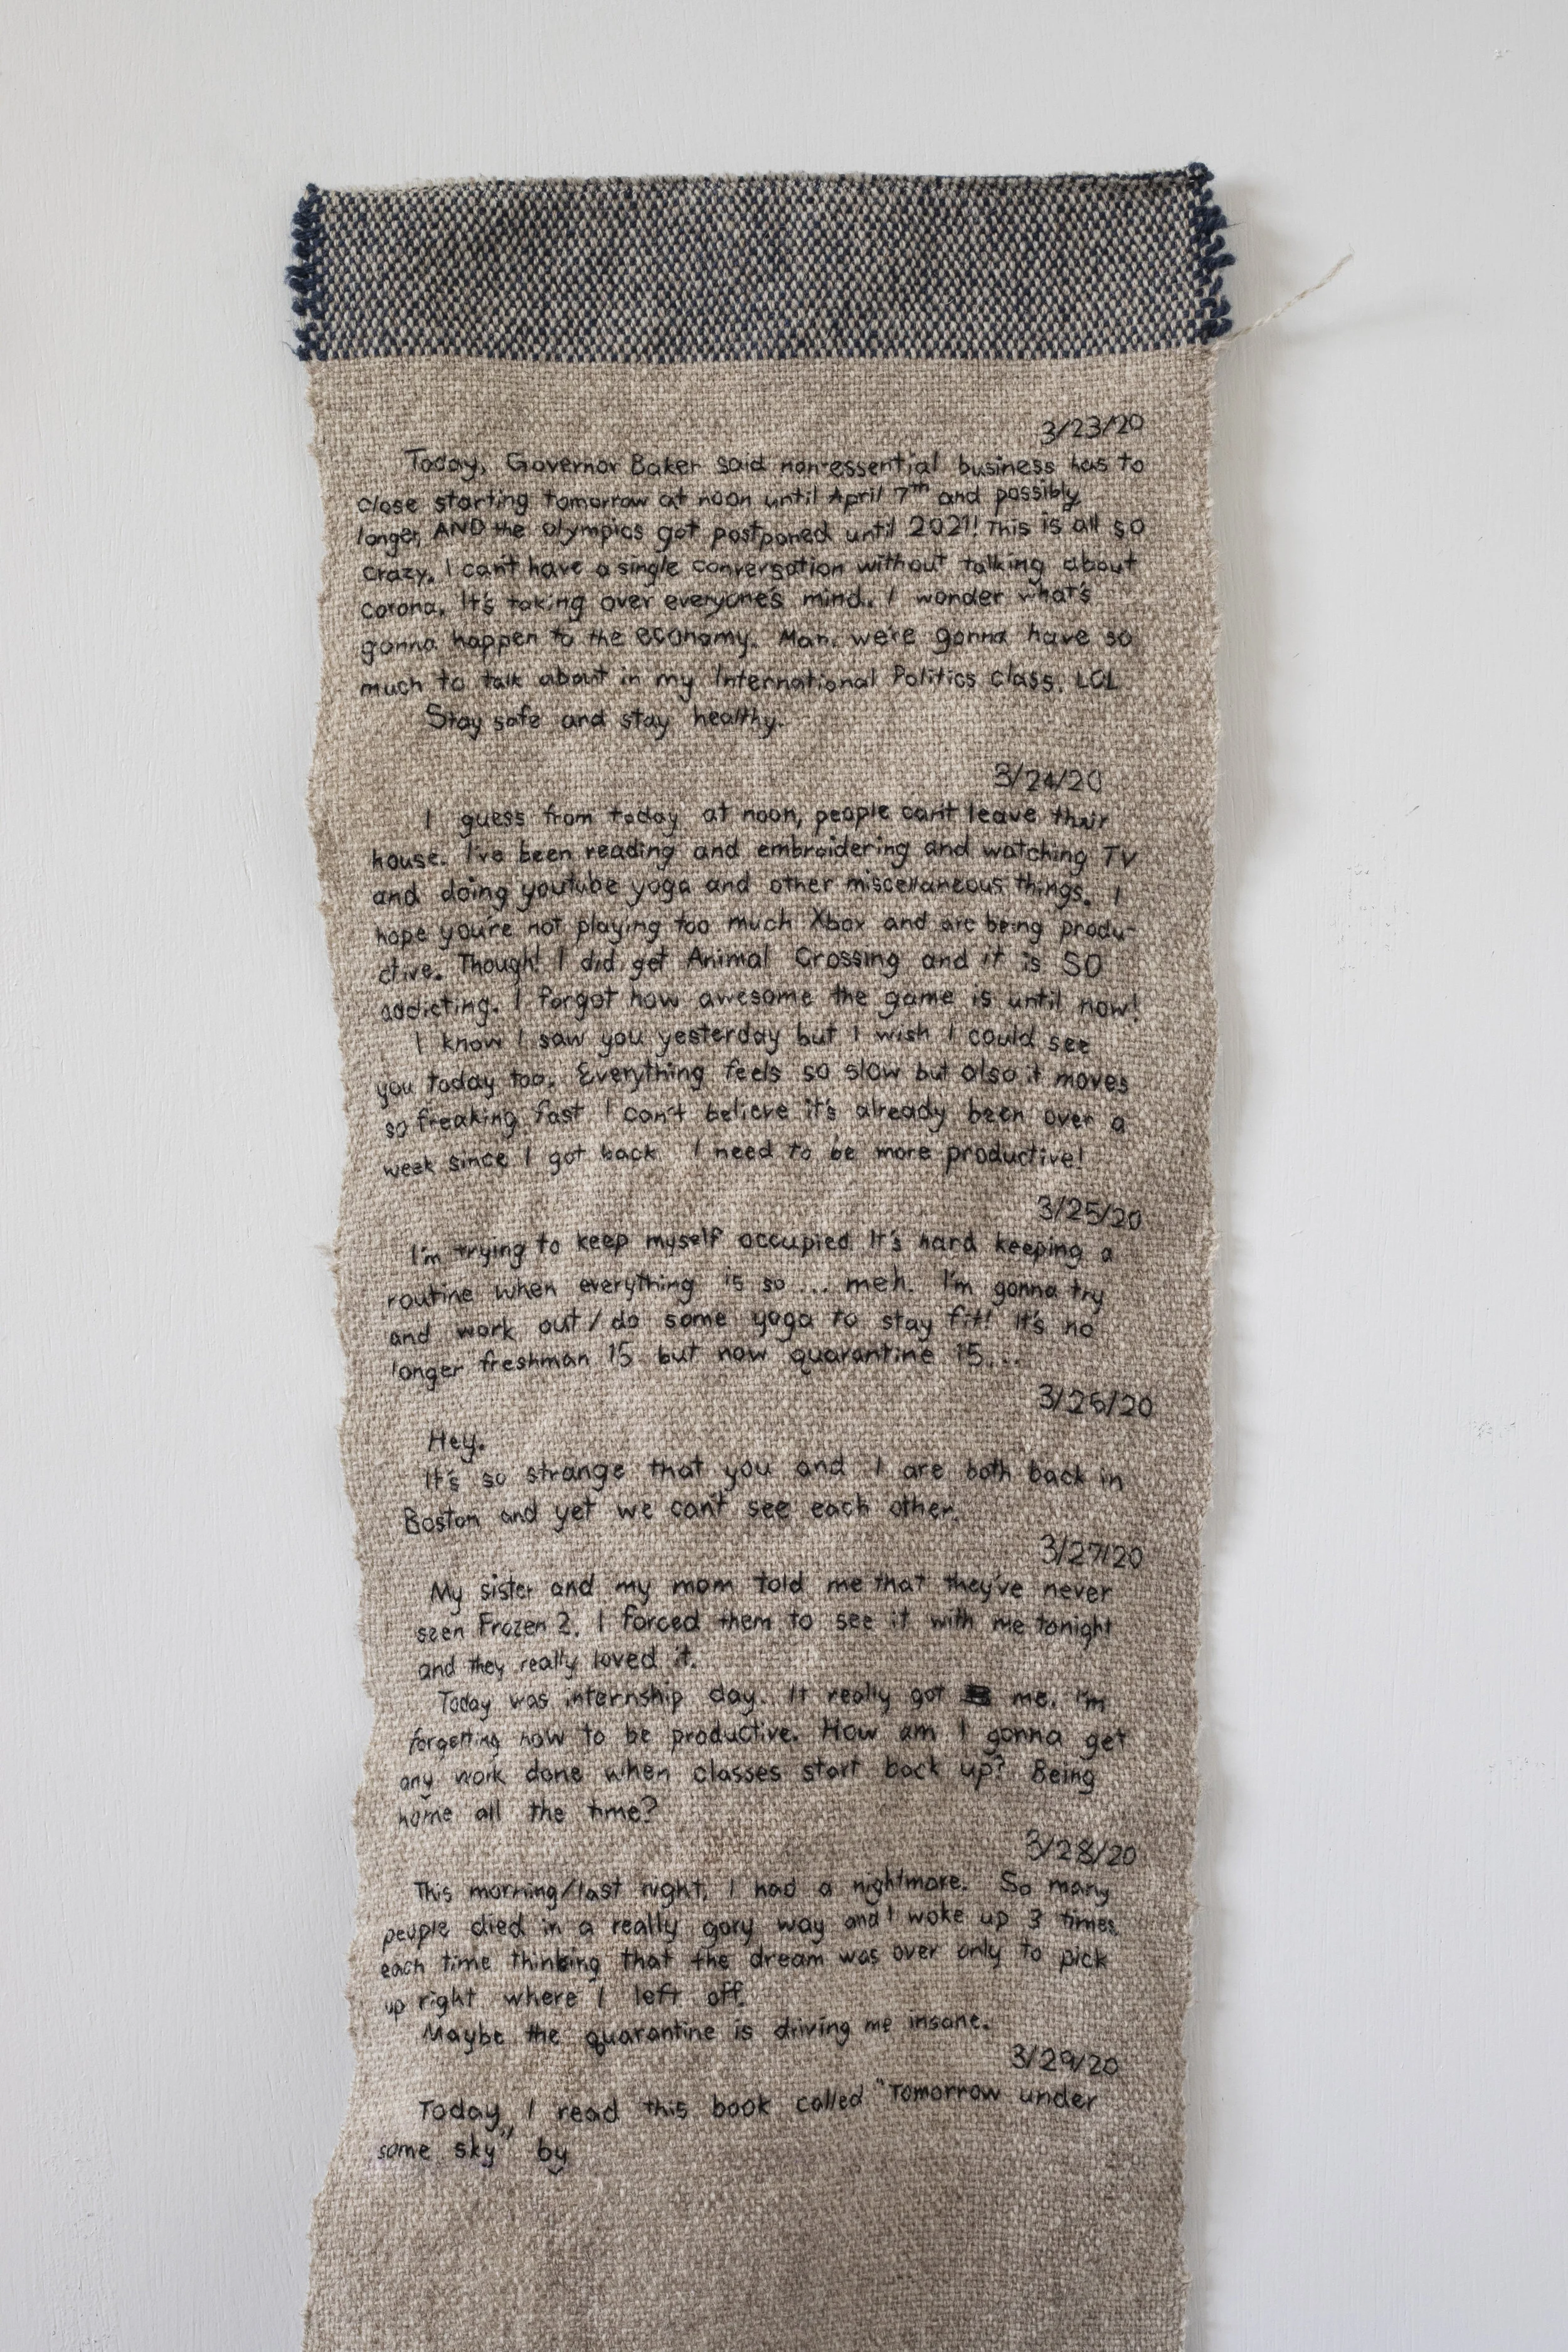 3/23/20
Today, Governor Baker said non-essential business has to
close starting tomorrow at noon until April 7th and possibly
longer, AND the olympics got postponed until 2021! This is all so
crazy. I can't have a single conversation without talking about
corona. It's taking over everyone's mind. I wonder what's
gonna happen to the economy. Man. we're gonna have so
much to talk about in my International Politics class. LOL
Stay safe and stay healthy.
3/24/20
I guess from today at noon, people can't leave their
house. I've been reading and embroidering and watching TV
and doing youtube yoga and other miscellaneous things. I
hope you're not playing too much Xbox and are being produ-
ctive. Though! I did get Animal Crossing and it is SO
addicting. I forgot how awesome the game is until now!
I know I saw you yesterday but I wish I could see
you today too. Everything feels so slow but also it moves
so freaking fast I can't believe it's already been over a
week since I got back. I need to be more productive!
3/25/20
I'm trying to keep myself occupied. It's hard keeping a
routine when everything is so... meh. I'm gonna try
and work out/do some yoga to stay fit! It's no
longer freshman 15 but now quarantine 15...
3/26/20
Hey.
It's so strange that you and I are both back in
Boston and yet we can't see each other.
3/27/20
My sister and my mom told me that they've never
seen Frozen 2. I forced them to see it with me tonight
and they really loved it.
Today was internship day. It really got me. I'm
forgetting how to be productive. How am I gonna get
any work done when classes start back up? Being
home all the time?
3/28/20
This morning/last night, I had a nightmare. So many
people died in a really gory way and I woke up 3 times
each time thinking that the dream was over only to pick
up right where I left off.
Maybe the quarantine is driving me insane.
3/29/20
Today, I read this book called "Tomorrow under
some sky" by